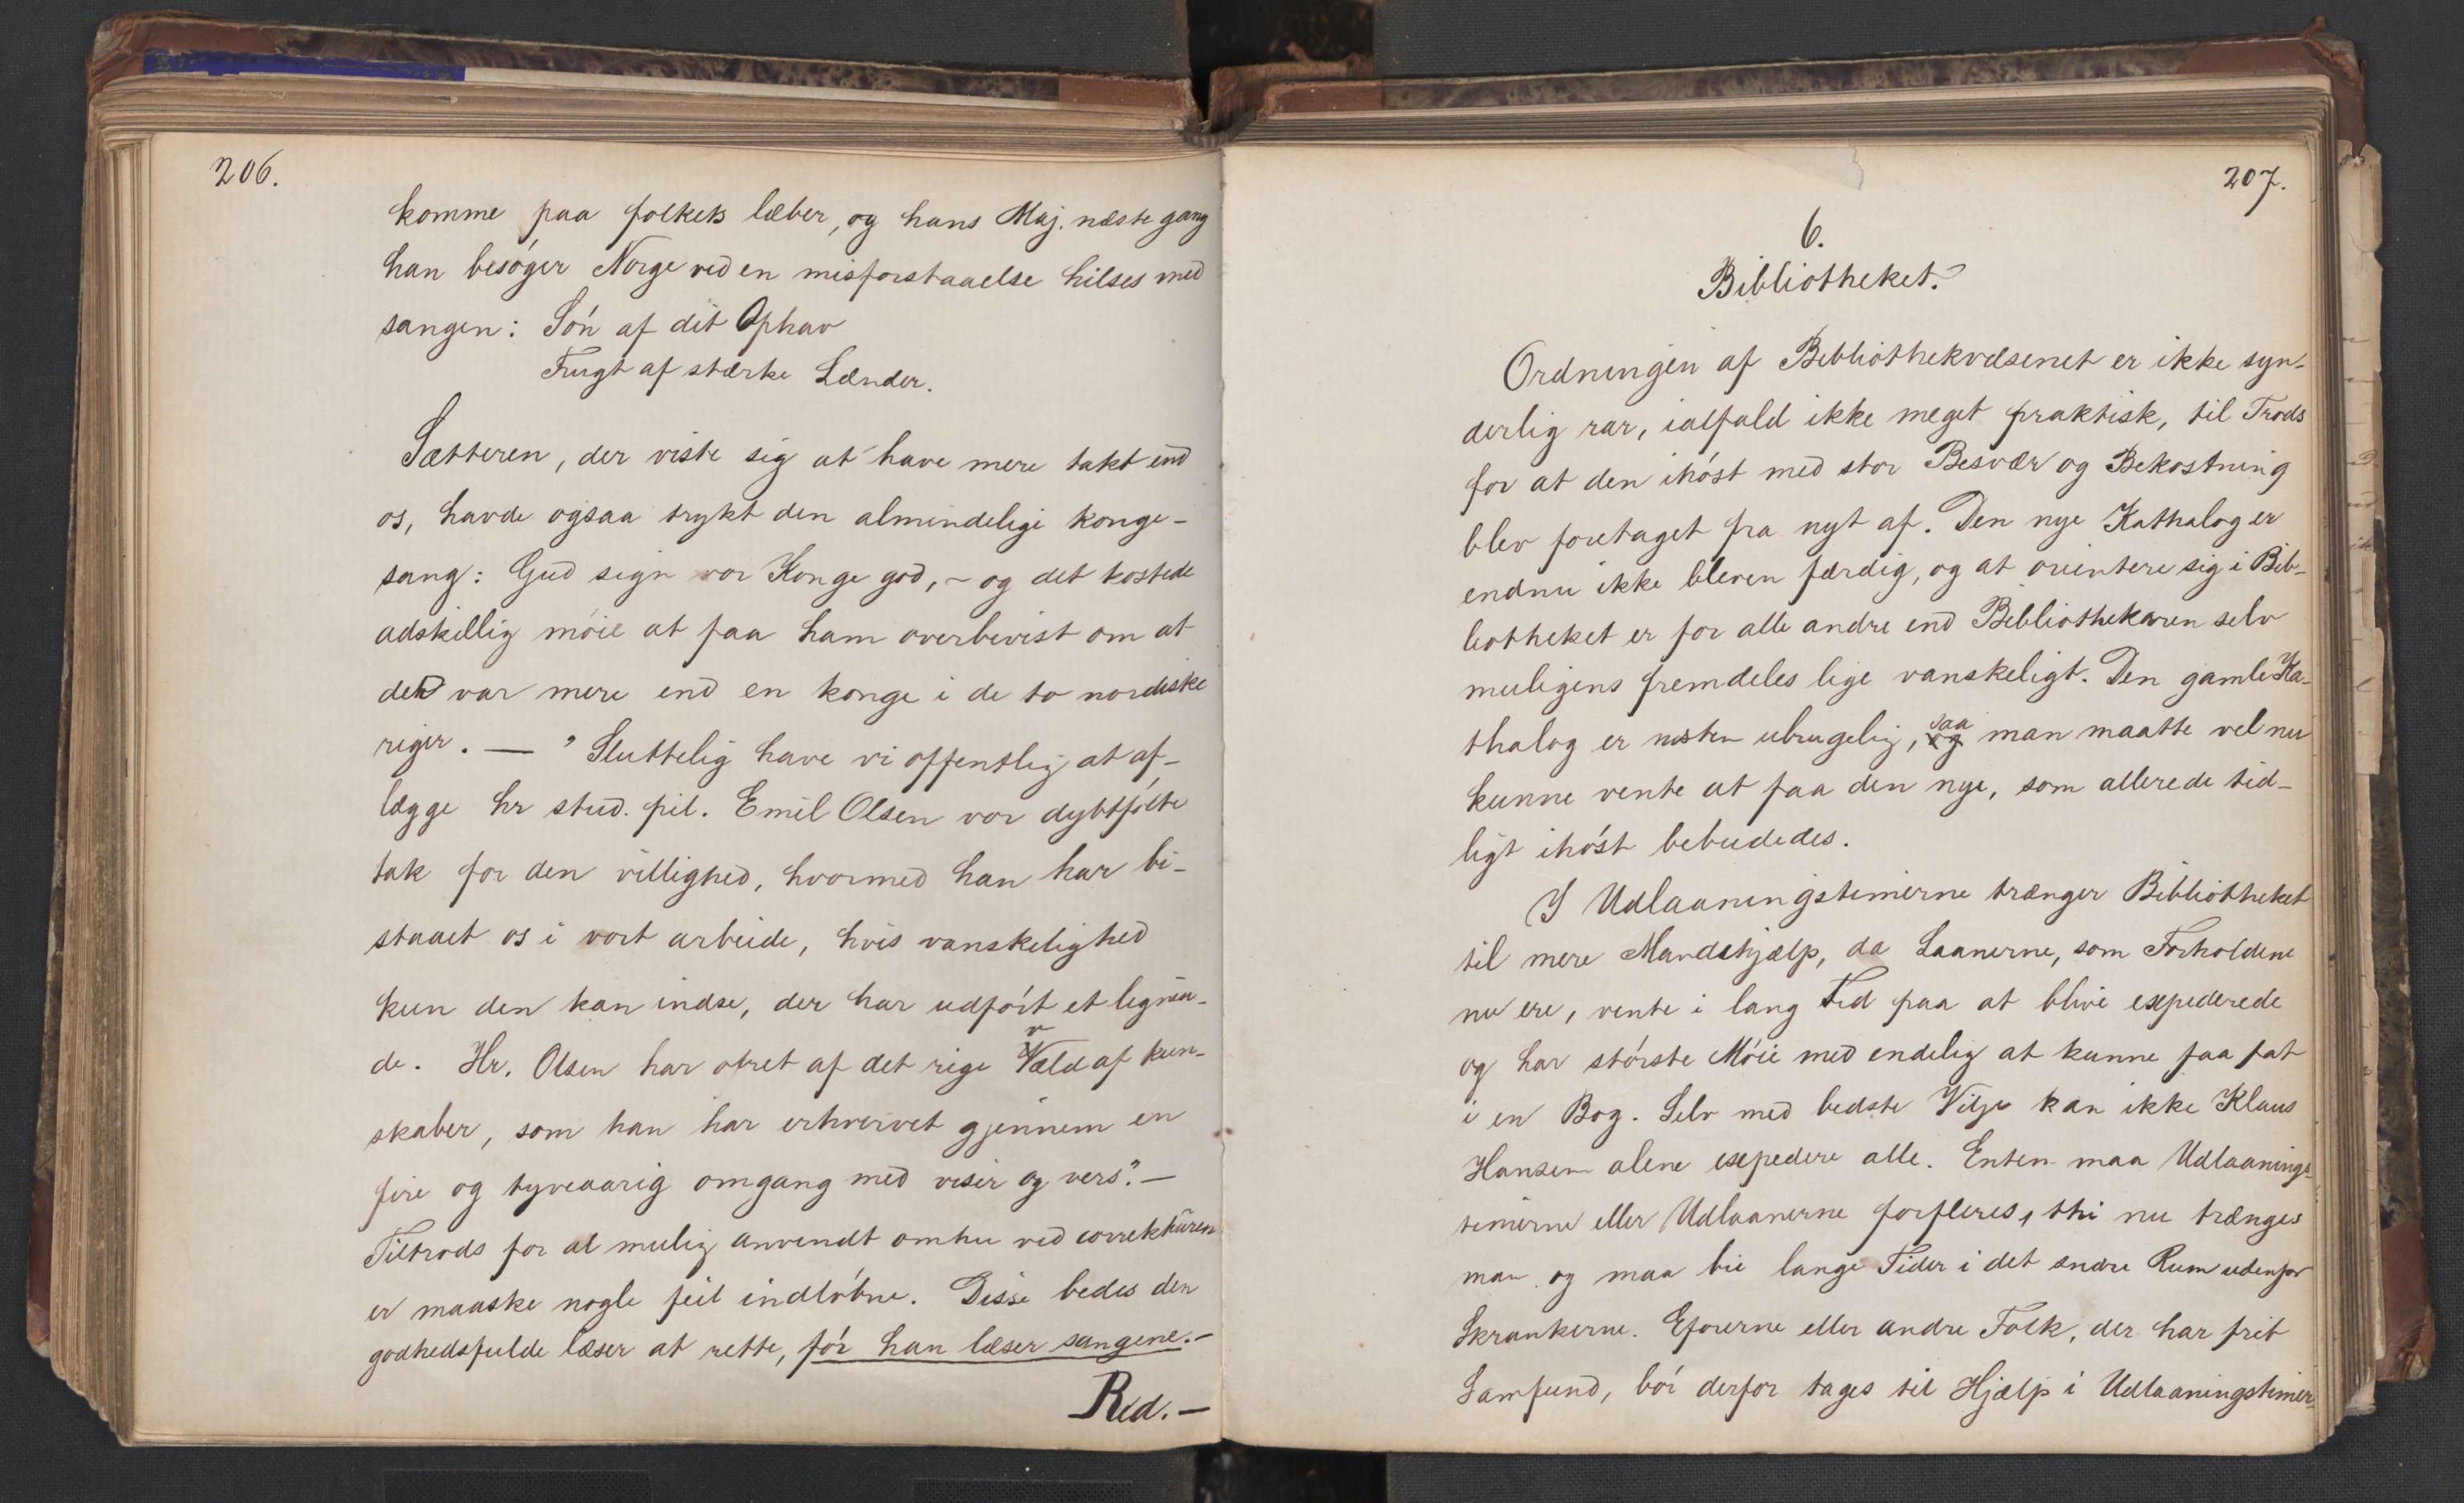 206.
komme paa folkets læber, og hans Maj. næste gang
han besøger Norge ved en misforstaaelse hilses med
sangen: Søn af dit Ophav
Frugt af stærke Lænder.
Sætteren, der viste sig at have mere takt end
os, havde ogsaa trykt den almindelige konge-
sang: Gud sign vor Konge god, - og det kostede
adskillig møie at faa ham overbevist om at
der var mere end en konge i de to nordiske
riger. — " Sluttelig have vi offentlig at af-
lægge hr stud. fil. Emil Olsen vor dybtfølte
tak for den villighed, hvormed han har bi-
staaet os i vort arbeide, hvis vanskelighed
kun den kan indse, der har udført et lignen-
de. Hr. Olsen har øtret af det rige væld af kun-
skaber, som han har erhvervet gjennem en
fire og tyveaarig omgang med viser og vers". —
Tiltrods for al mulig anvendt omhu ved correkturen
er maaske nogle feil indløbne. Disse bedes den
godhedsfulde læser at rette, før han læser sangene. -
Red. —
207.
6.
Bibliotheket.
Ordningen af Bibliothekvæsenet er ikke syn-
derlig rar, ialfald ikke meget praktisk, til Trods
for at den ihøst med stor Besvær og Bekostning
blev foretaget fra nyt af. Den nye Kathalog er
endnu ikke bleven færdig, og at orientere sig i Bib-
liotheket er for alle andre end Bibliothekaren selv
muligens fremdeles lige vanskeligt. Den gamle Ka-
thalog er næsten ubrugelig, saa man maatte vel nu
kunne vente at faa den nye, som allerede tid-
ligt ihøst bebudedes.
I Udlaaningstimerne trænger Bibliotheket
til mere Mandskjælp, da Laanerne, som Forholdene
nu ere, vente i lang Tid paa at blive expederede
og har største Møie med endelig at kunne faa fat
i en Bog. Selv med bedste Vilje kan ikke Klaus
Hansen alene expedere alle. Enten maa Udlaanings-
timerne eller Udlaanerne forfleres, thi nu trænges
man og maa bie lange Tider i det andre Rum udenfor
Skrankerne. Eforerne eller andre Folk, der har frit
Samfund, bør derfor tages til Hjælp i Udlaaningstimer-